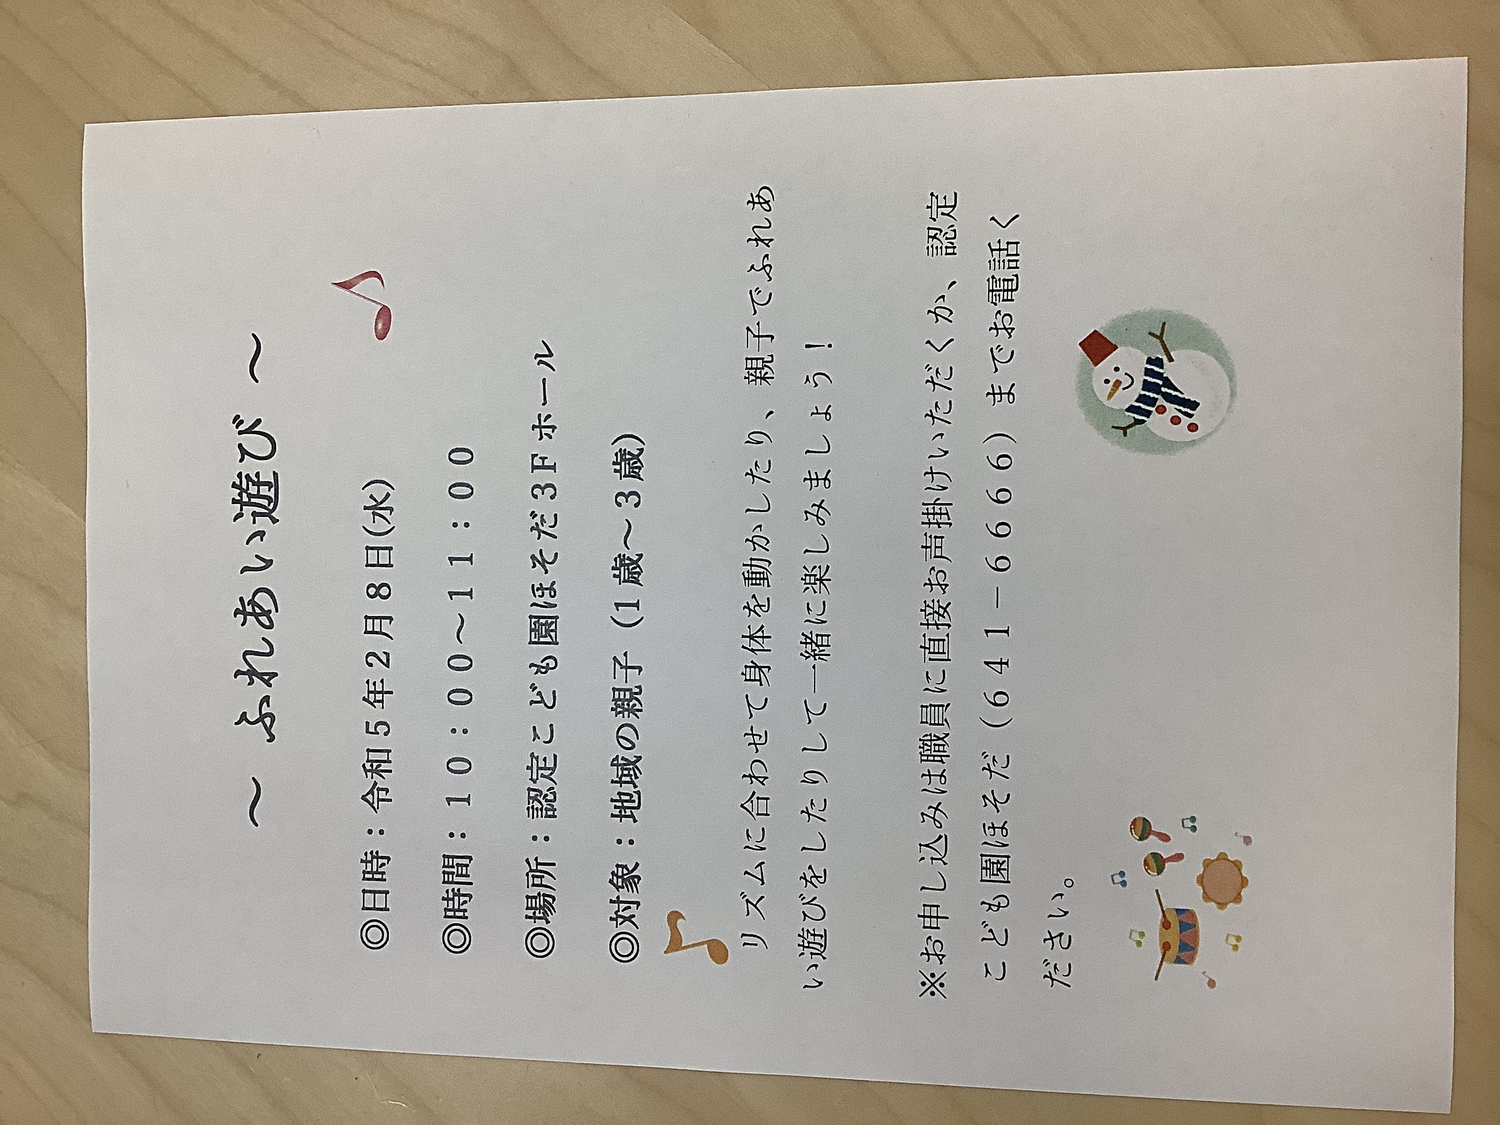 ～ ふれあい遊び ～
◎日時：令和５年２月８日(水)
◎時間：１０：００～１１：００
◎場所：認定こども園ほそだ３Ｆホール
◎対象：地域の親子（１歳～３歳）
リズムに合わせて身体を動かしたり、親子でふれあ
い遊びをしたりして一緒に楽しみましょう！
※お申し込みは職員に直接お声掛けいただくか、認定
こども園ほそだ（６４１－６６６６）までお電話く
ださい。